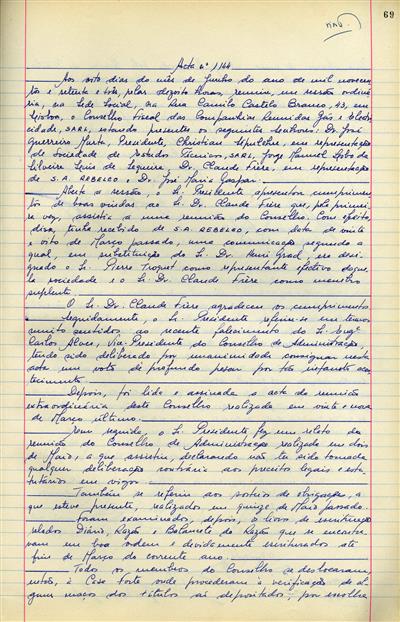 69
Acta nº 144
Aos oito dias do mês de Junho do ano de mil novecen-
tos e setenta e três, pelas dezoito horas, reuniu, em sessão ordiná-
ria, na Sede Social, na Rua Camilo Castelo Branco, 43, em
Lisboa, o Conselho Fiscal das Companhias Reunidas Gás e Electri-
cidade, SARL, estando presentes os seguintes Senhores: Dr. José
Guerreiro Murta, Presidente, Christian Sepulchre, em representação
de Sociedade de Estudos Técnicos, SARL, Jorge Manuel
Silveira, Dr. Claude Frère, em representação
de S.A. REBELGO e Dr. José Maria Gaspar.
Aberta a sessão, o Sr. Presidente apresentou cumprimen-
tos de boas vindas ao Sr. Dr. Claude Frère que, pela primei-
ra vez, assistia a uma reunião do Conselho. Com efeito
disse, tinha recebido de S.A. REBELGO, com data de vinte
e oito de Março passado, uma comunicação segundo a
qual, em substituição do Sr. Dr. Henri Grad, era desi-
gnado o Sr. Pierre Troquet como representante efectivo daque-
la sociedade e o Sr. Dr. Claude Frère como membro
suplente.
O Sr. Dr. Claude Frère agradeceu os cumprimentos.
Seguidamente, o Sr. Presidente referiu-se em termos
muito sentidos ao recente falecimento do Sr. Engº
Carlos Alves, Vice-Presidente do Conselho de Administração,
tendo sido deliberado por unanimidade consignar nesta
acta um voto de profundo pesar por tão infausto acon-
tecimento.
Depois, foi lida e assinada a acta da reunião
extraordinária deste Conselho realizada em vinte e nove
de Março último.
Em seguida, o Sr. Presidente fez um relato da
reunião do Conselho de Administração realizada em dois
de Maio, a que assistiu, declarando não ter sido tomada
qualquer deliberação contrária aos preceitos legais e esta-
tutários em vigor.
Também se referiu aos sorteios de obrigações, a
que esteve presente, realizados em quinze de Maio passado.
Foram examinados, depois, os livros de escrituração
selados Diário, Razão e Balancete do Razão que se encontra-
vam em boa ordem e devidamente escriturados até
fins de Março do corrente ano.
Todos os membros do Conselho se deslocaram,
então, à Casa Forte onde procederam à verificação de al-
guns maços dos títulos ali depositados, por escolha